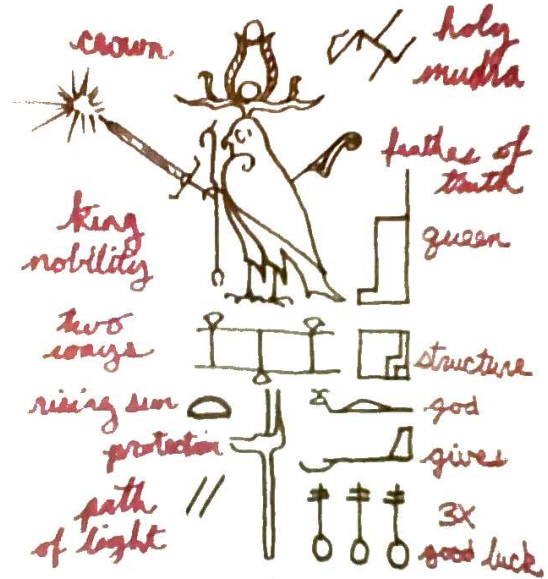 crown
holy
mudra
feather of
truth
king
nobility
queen
two
ways
structure
rising sun
god
protection
gives
path
of light
3X
good luck